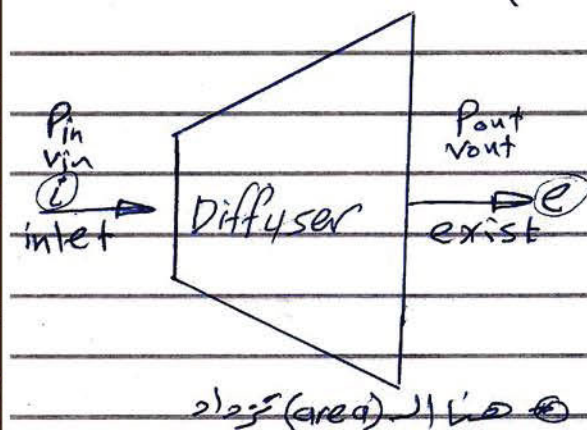 Pin
vin
i
inlet
Diffyser
Pout
vout
e
exist
هنا ال (area) تزداد